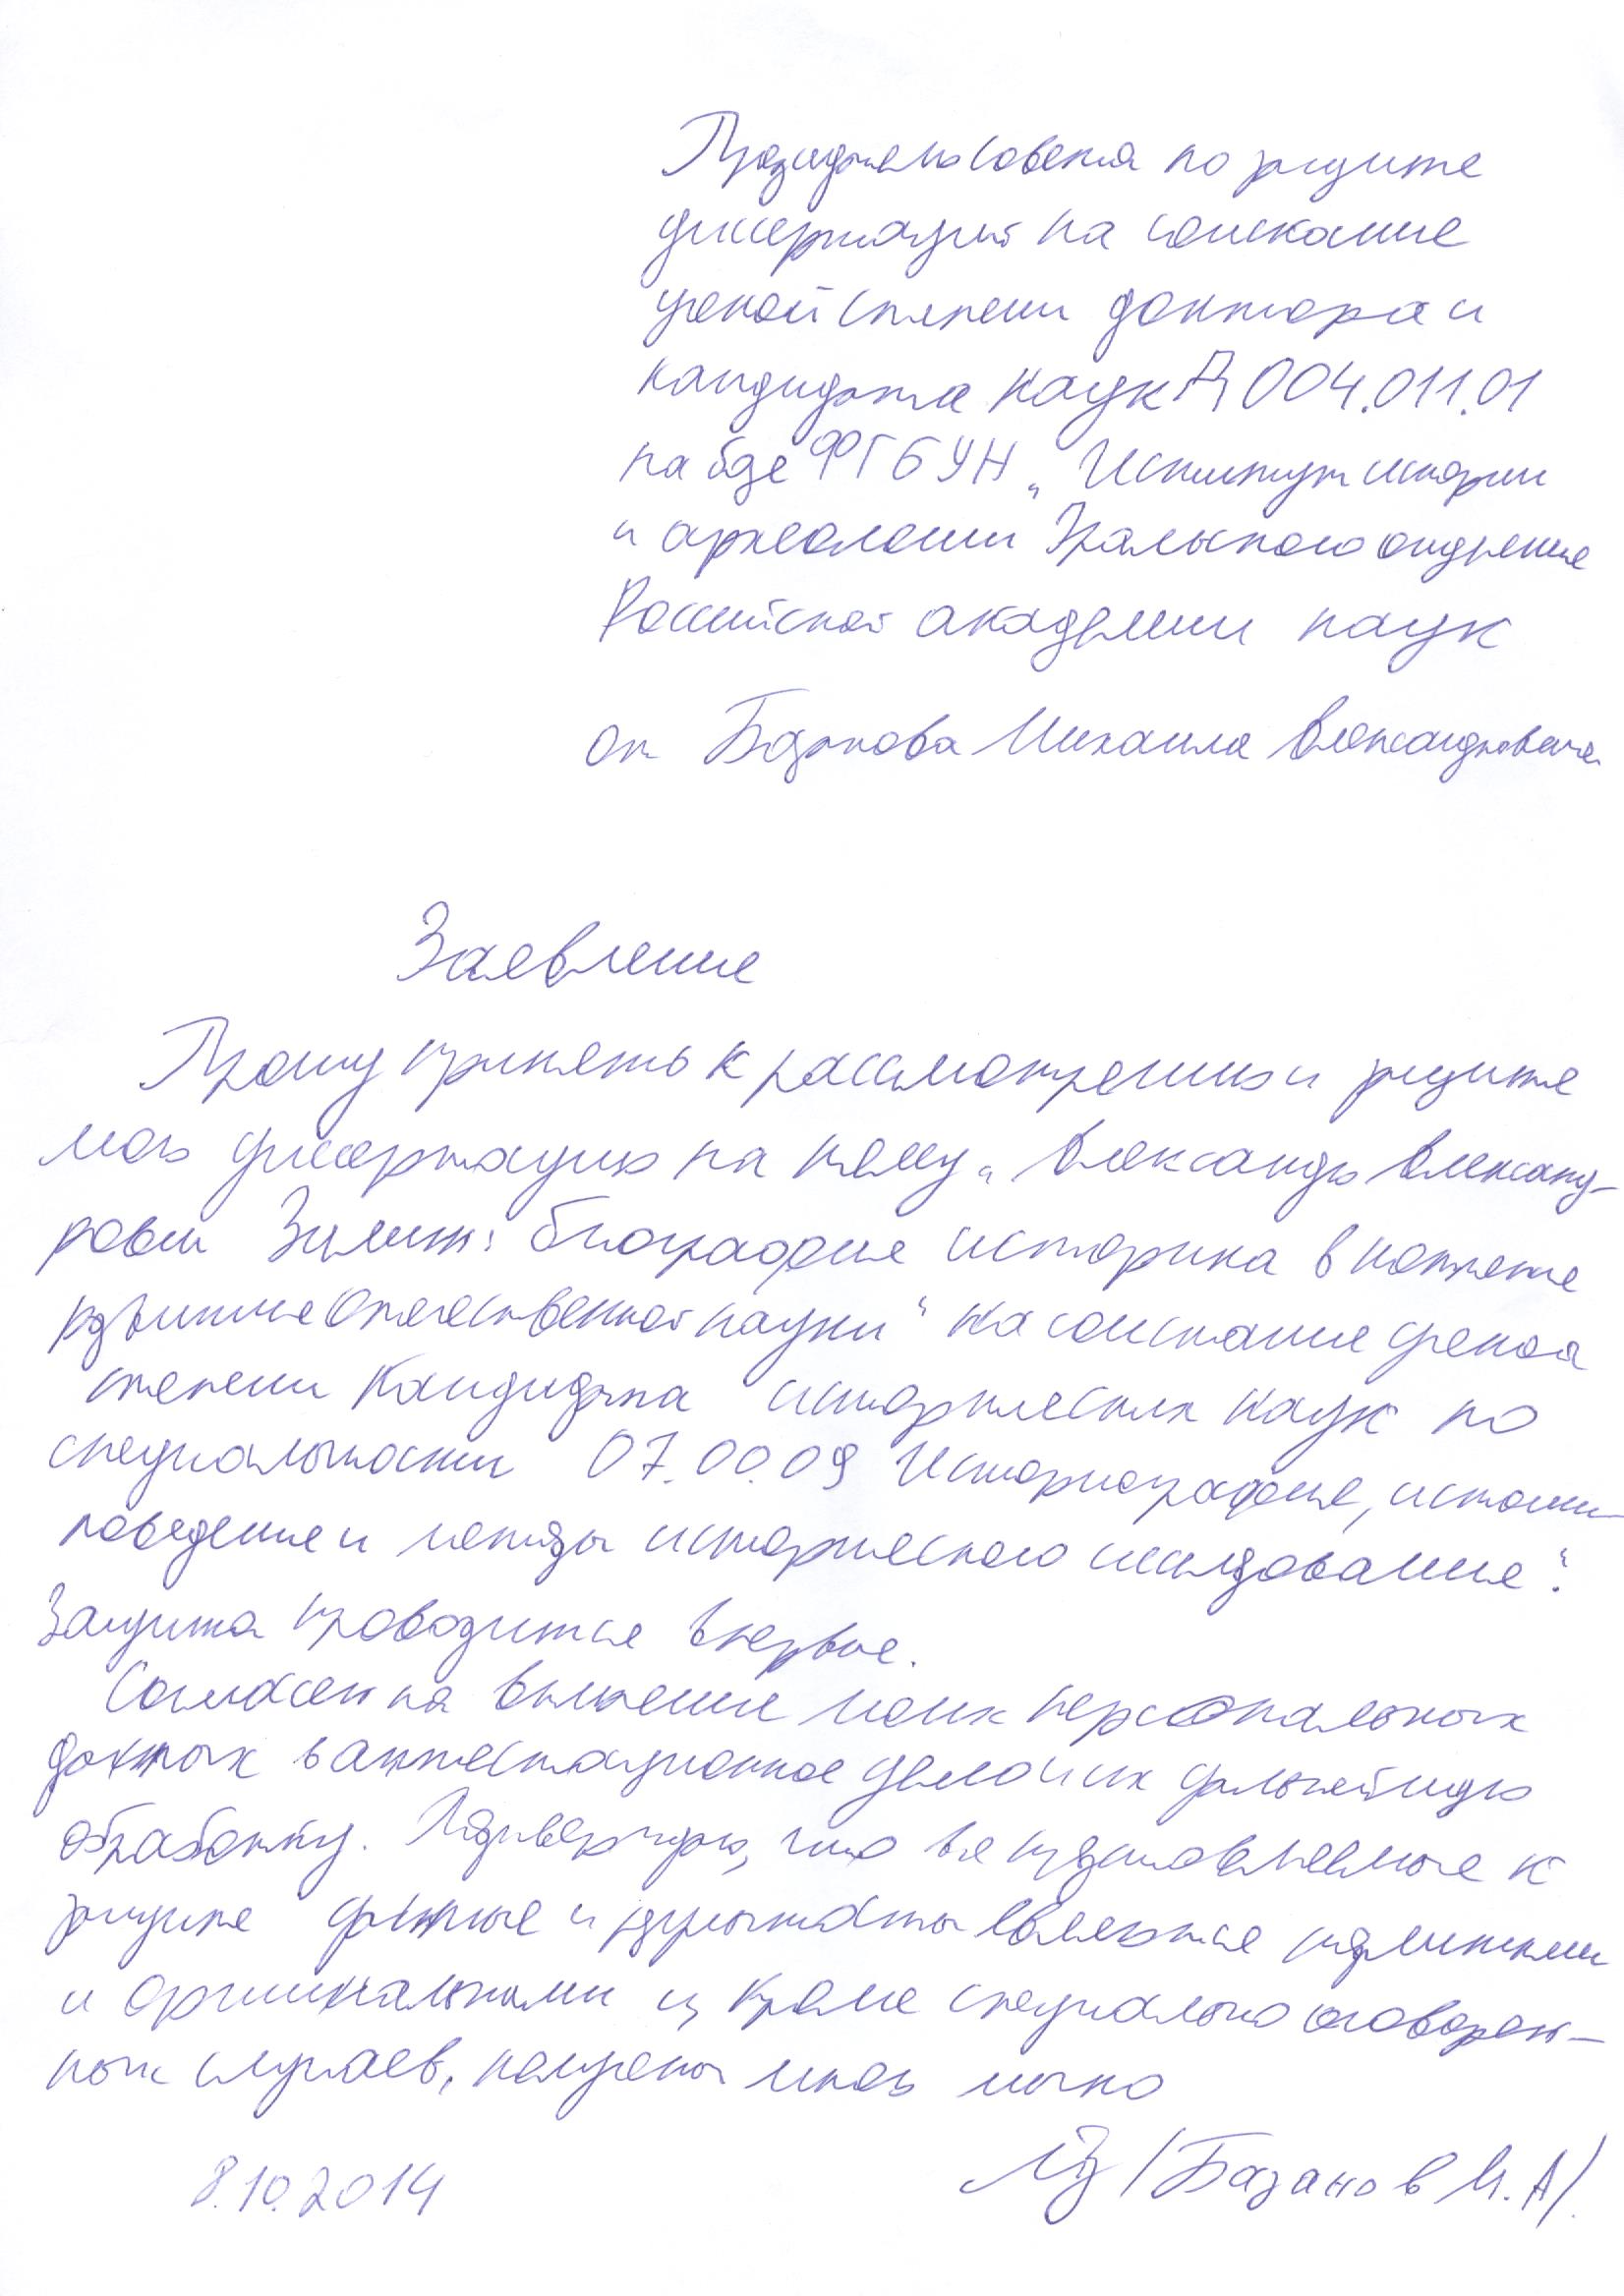 Председателю совета по защите
диссертаций на соискание
ученой степени доктора и
кандидата наук Д 004.011.01
на базе ФГБУН „Институт истории
и археологии Уральского отделения
Российской академии наук
от Базанова Михаила Александровича
Заявление
Прошу принять к рассмотрению и защите
мою диссертацию на тему „Александр Александ-
рович Зимин: биография историка в контексте
развития отечественной науки“ на соискание ученой
степени кандидата исторических наук по
специальности 07.00.09 Историография, источни-
коведение и методы исторического исследования“.
Защита проводится впервые.
Согласен на включение моих персональных
данных в аттестационное дело и их дальнейшую
обработку. Подтверждаю, что все представляемые к
защите данные и результаты являются подлинными
и оригинальными и, кроме специально оговорен-
ных случаев, получены мною лично
8.10.2014
/Базанов М.А/.